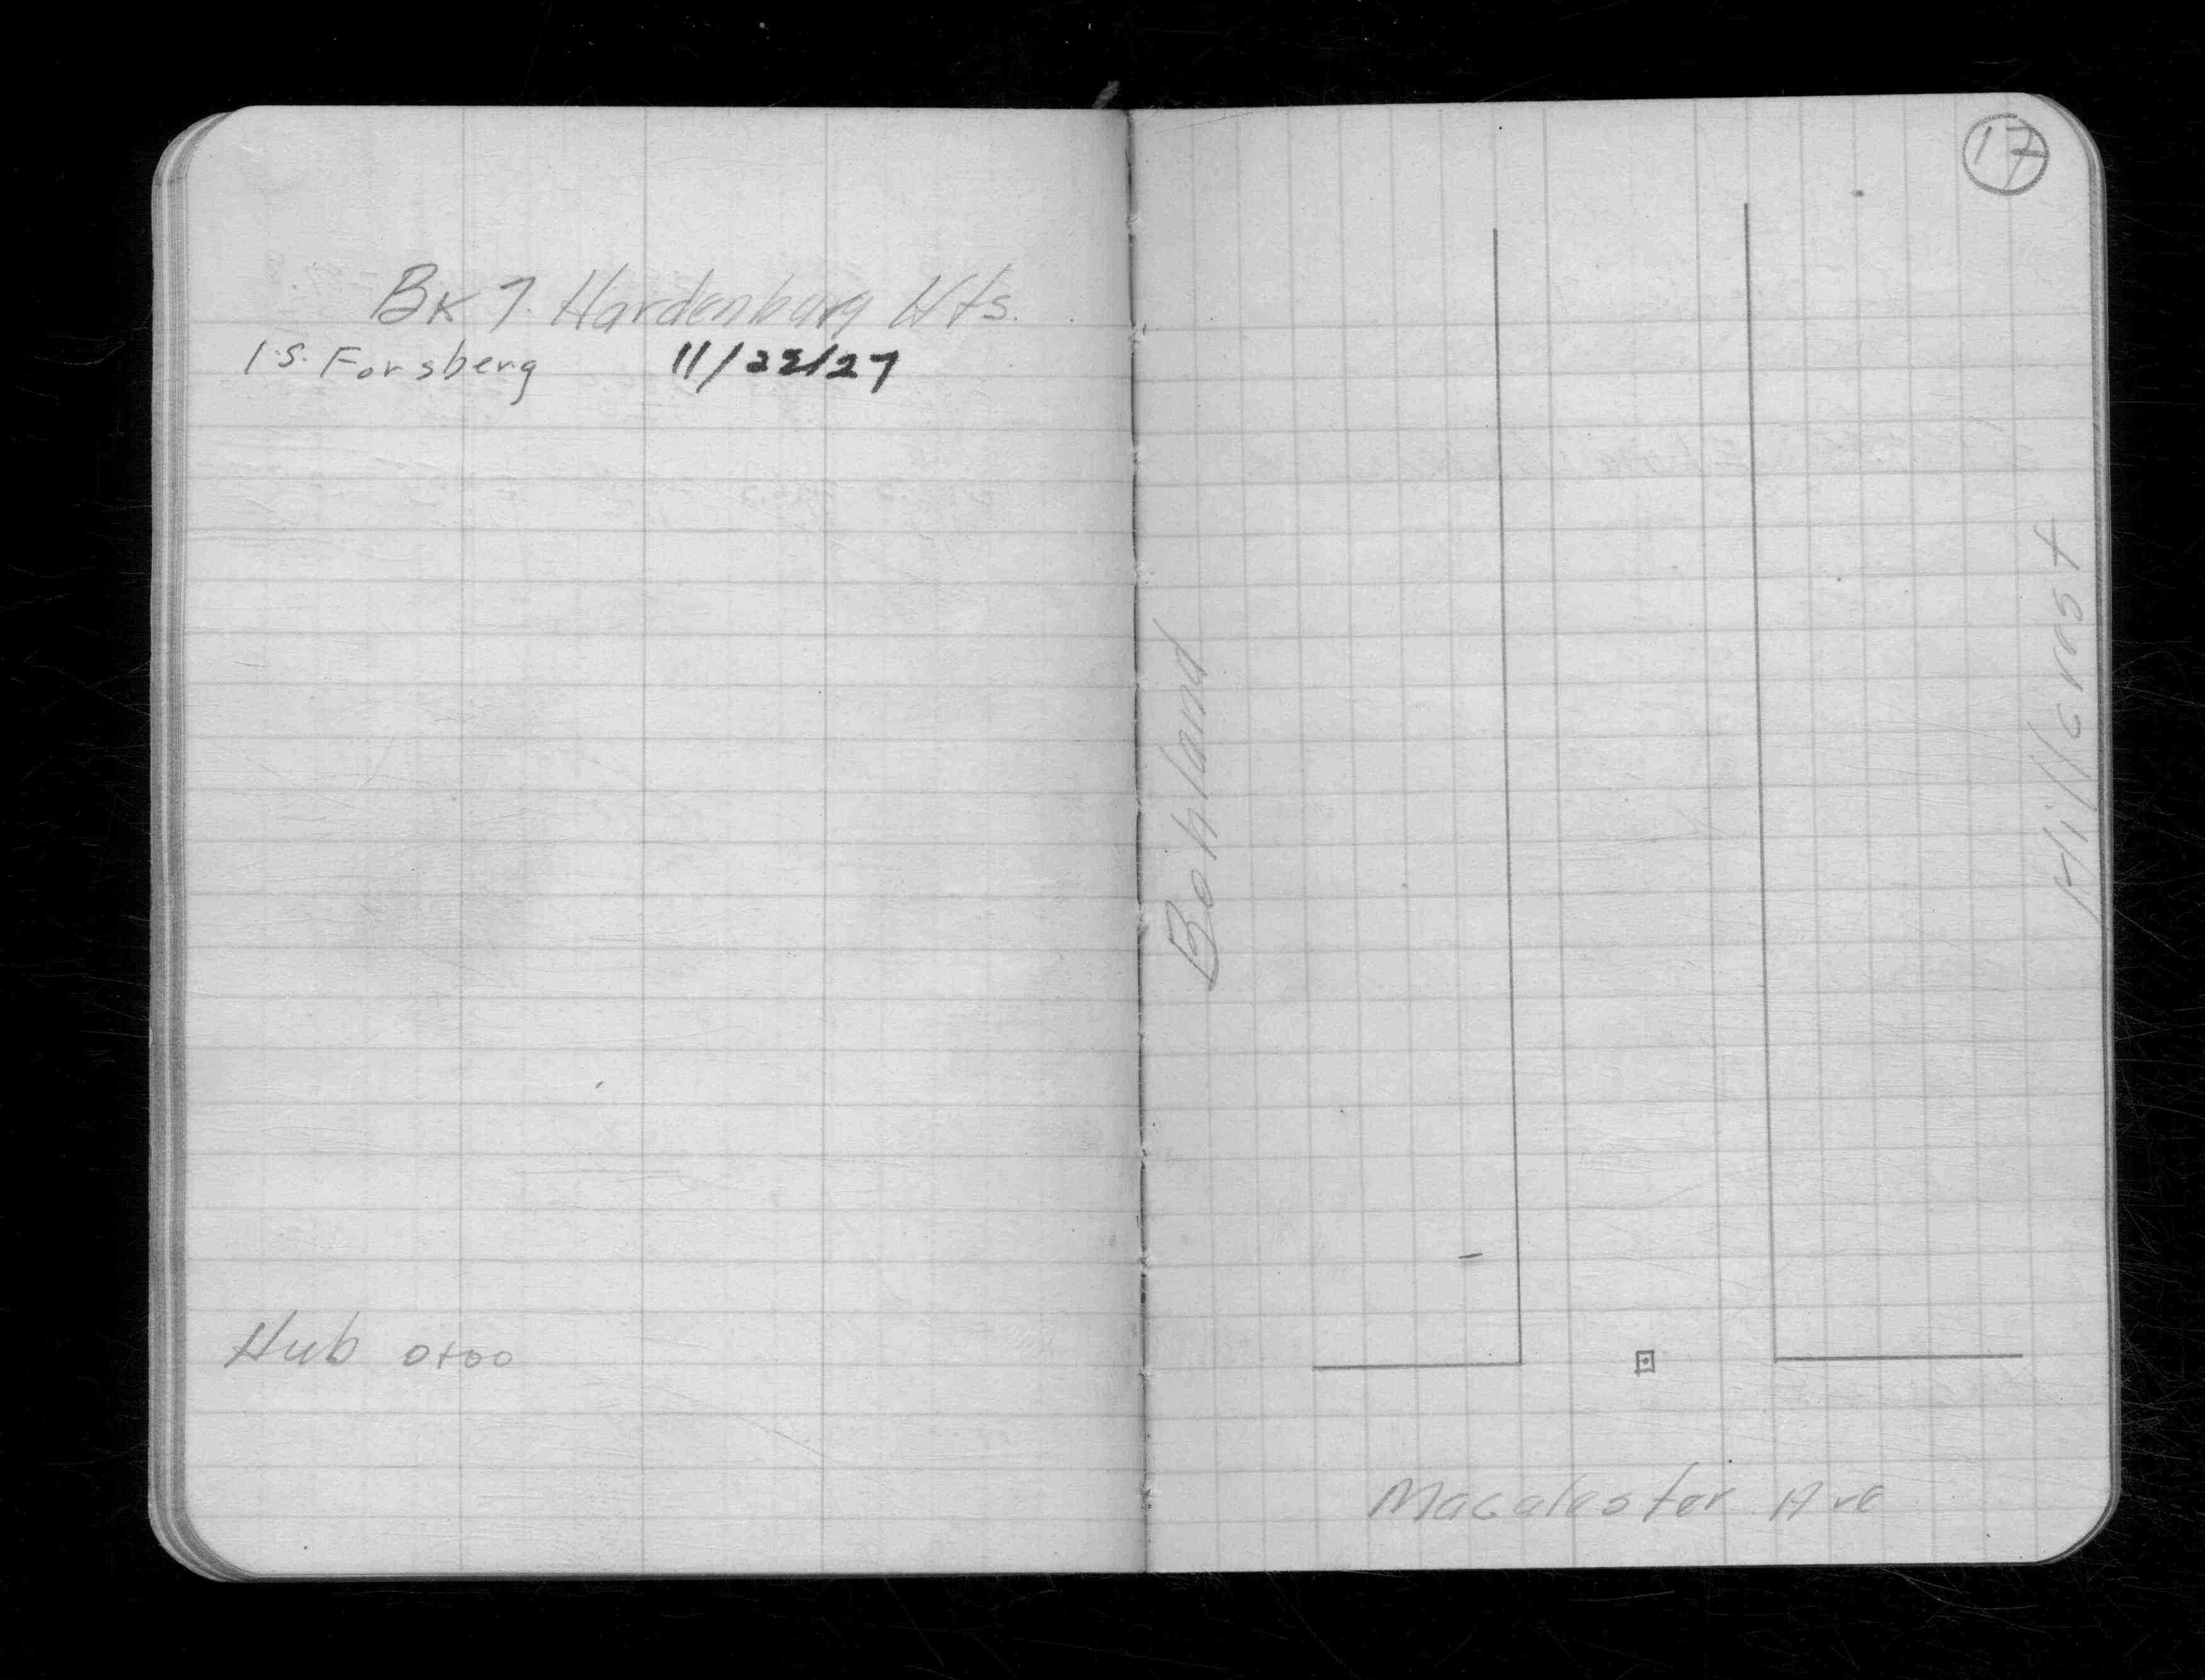 Bk 7. Hardenburg Hts.
I.S. Forsberg 11/22/27
Hub 0+00
17
Bohland
Hillcrest
Macalester Ave